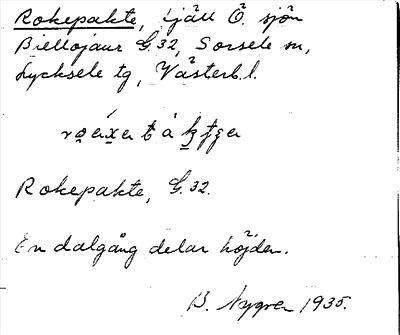 Rokepakte, fjäll Ö. sjön
Biellojaur G.32, Sorsele sn,
Lycksele tg, Västerb.l.
Rokepakte, G.32.
En dalgång delar höjden.
B. Nygren 1935.